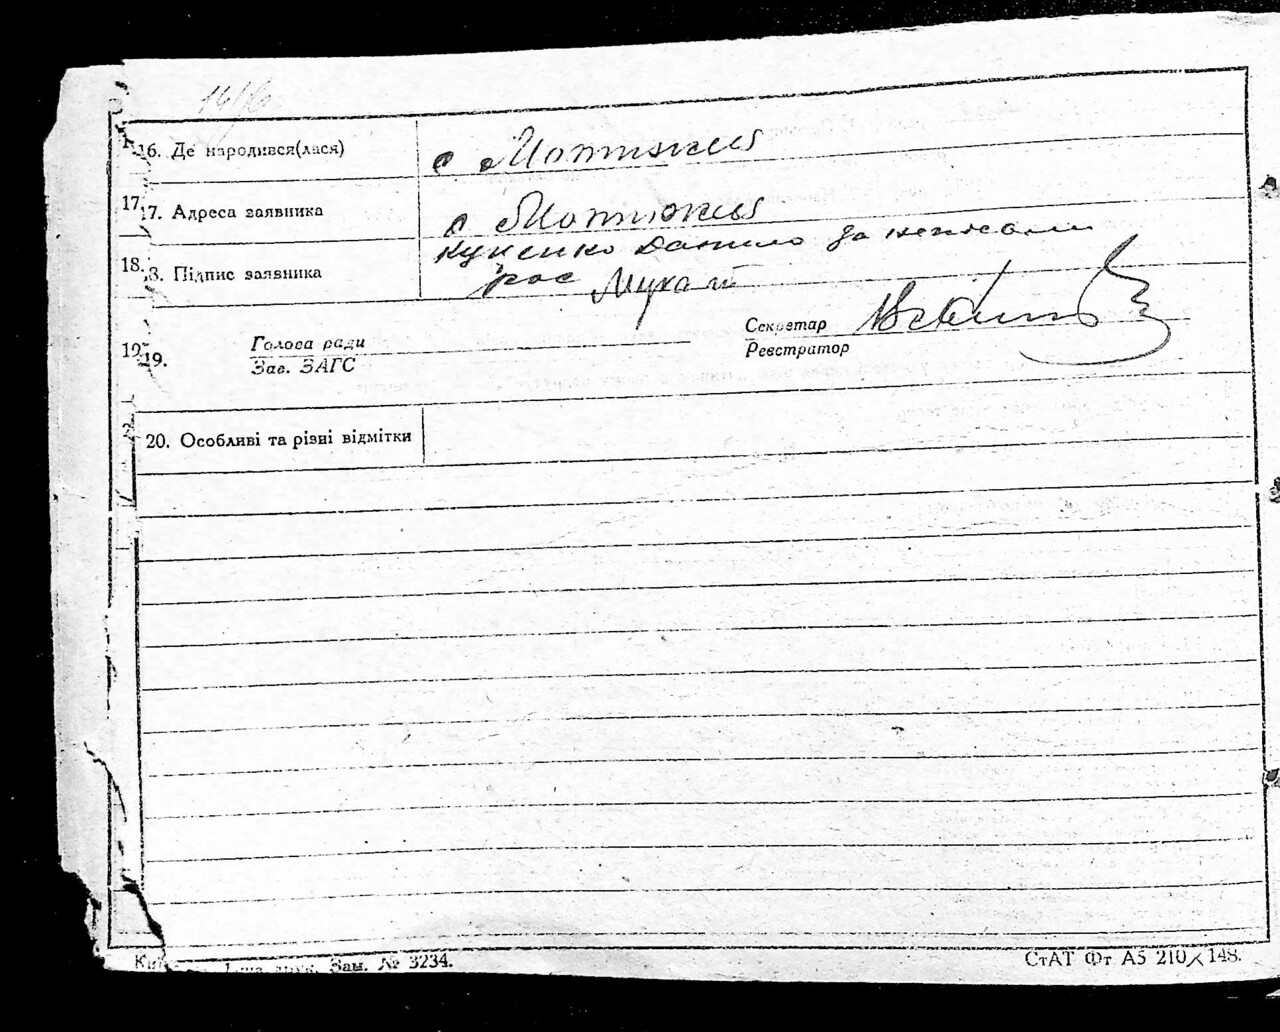 14/6
16. Де народився(лася) с Мотижин
17. 7. Адреса заявника с Мотижин
Куценко Данило за неписьм
18. 8. Підпис заявника рос
19. 19. Голова ради Секретар
Зав. ЗАГС Реєстратор
20. Особливі та різні відмітки
Зам. № 3234. СтАТ Фт А5 210×148.